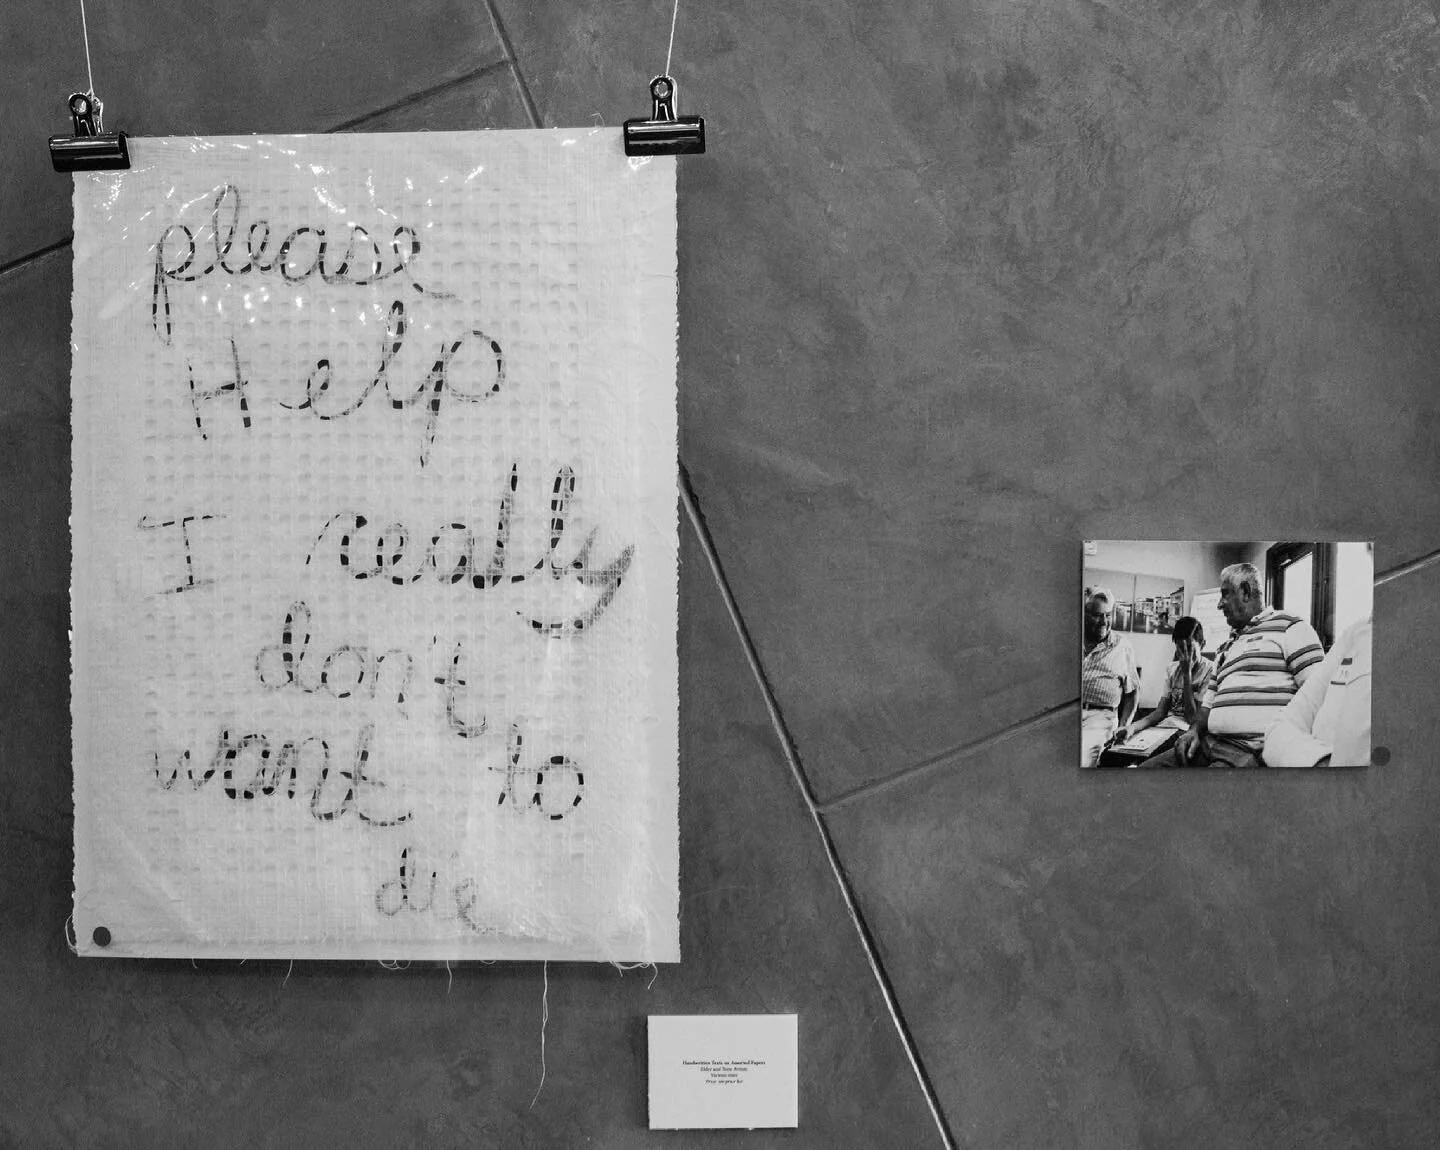 please
Help
I really
don't
want to
die
Handwritten Texts on Assorted Papers
Elder and Teen Artists
Various sizes